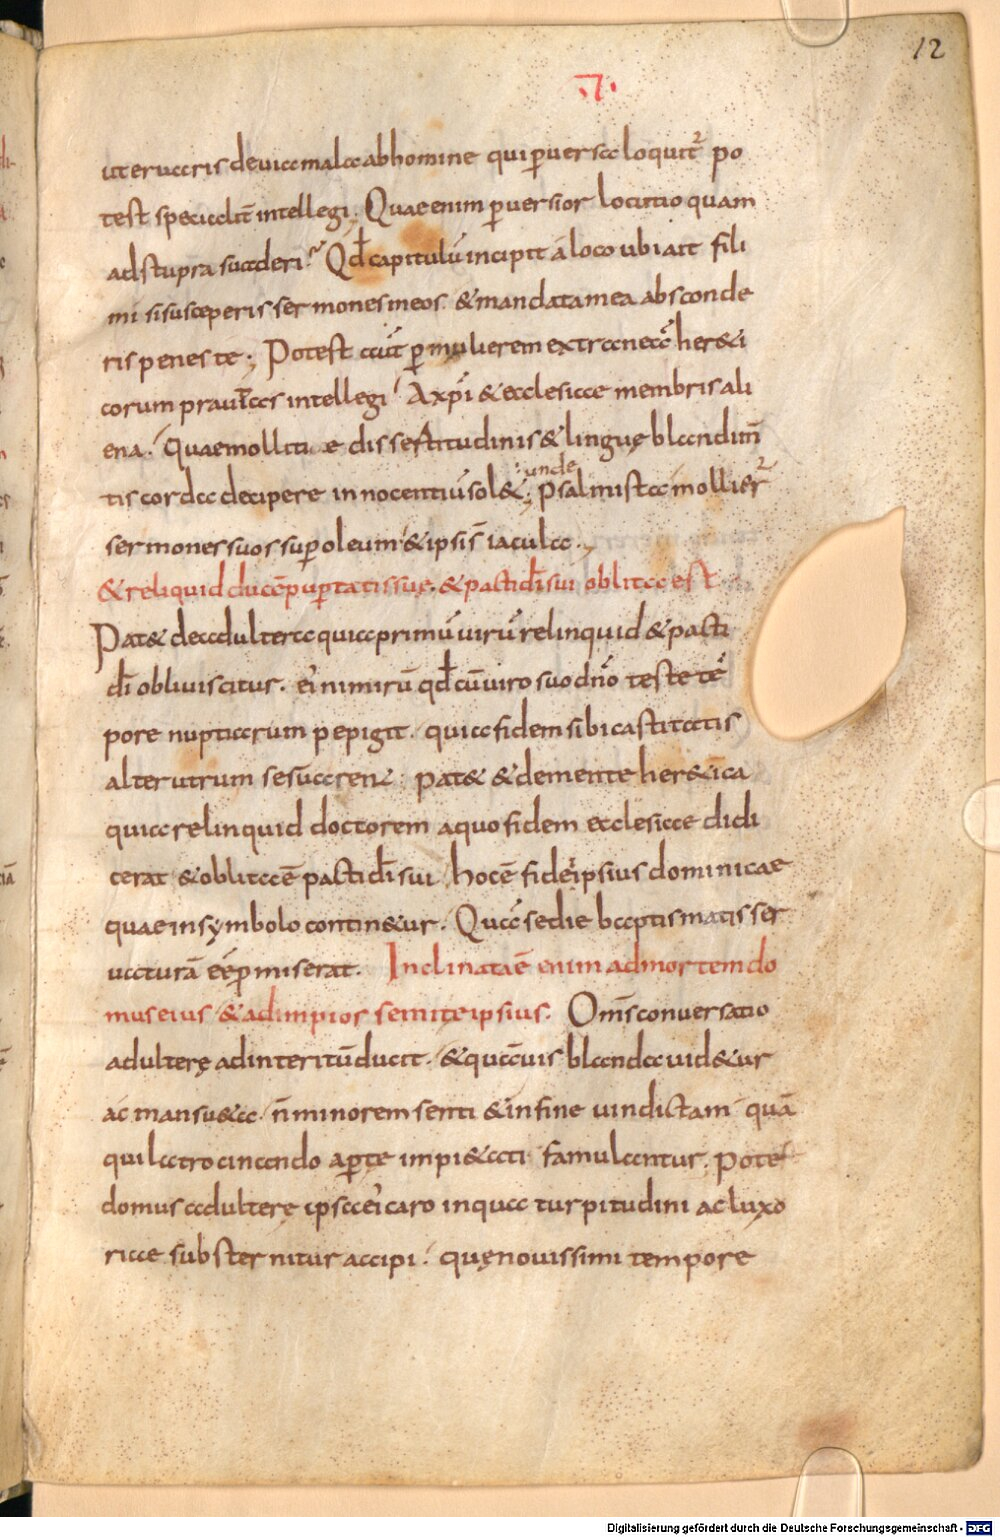 12
ut eruaris de uia mala ab homine qui puersa loquit᷑ po
test specialit̄ intellegi; Quae enim puersior locutio quam
ad stupra suaderi? Qđ capitulū incipit a loco ubi ait fili
mi si susceperis sermones meos & mandata mea absconde
ris penes te; Potest aut̄ p mulierem extraneā her&i
corum prauitas intellegi A xp̄i & ecclesiae membris ali
ena. Quae mollitiae dissertitudinis & linguę blandim̄
tis corda decipere innocentiū sol&; unde psalmista molliert
sermones suos sup oleum & ipsi s̄ iacula.
& reliquid ducē pupertatis suę. & pacti dī sui oblita est
Pat& de adultera quia primū uirū relinquid & pacti
dī obliuiscitur. ei nimirū qđ cū uiro suo dn̄o teste tē
pore nuptiarum pepigit. quia fidem sibi castitatis
alterutrum seruarent. pat& & de mente her&ica
quia relinquid doctorem a quo fidem ecclesiae didi
cerat & oblita ē pacti dī sui hoc ē fidei ipsius dominicae
quae in symbolo contin&ur. Quā se die baptismatis ser
uaturā eē pmiserat. Inclinata ē enim ad mortem do
mus eius & ad impios semite ipsius. Om̄s conuersatio
adulterę ad interitū ducit. & quāuis blanda uid&ur
ac mansu&a. n̄ minorem senti & in fine uindictam quā
qui latrocinando apte impi&ati famulantur. Pote
domus adulterę ipsa ei caro in qua turpitudini ac luxo
riae substernitur accipi. quę nouissimi tempore
Digitalisierung gefördert durch die Deutsche Forschungsgemeinschaft - DFG